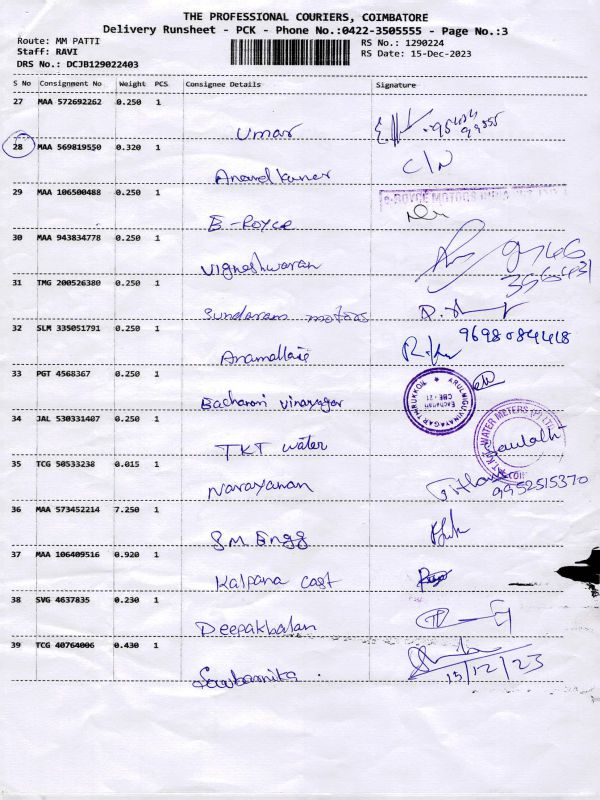 THE PROFESSIONAL COURIERS, COIMBATORE
Delivery Runsheet - PCK - Phone No.:0422-3505555 - Page No.:3
Route: MM PATTI
RS No.: 1290224
Staff: RAVI
RS Date: 15-Dec-2023
DRS No.: DCJB129022403
S No Consignment No Weight PCS Consignee Details Signature
27 MAA 572692262 0.250 1
Umar
28 MAA 569819550 0.320 1
Anandkumar C/N
29 MAA 106500488 0.250 1
B-ROYCE MOTORS INDIA
B-Royce
30 MAA 943834778 0.250 1
Vigneshwaran
31 TMG 200526380 0.250 1
Sundaram motors
32 SLM 335051791 0.250 1 9698084418
Anamallais
33 PGT 4568367 0.250 1
ARULMIGU VINAYAGAR THIRUKKOIL
CBE - 21
Bacharori vinayagar
34 JAL 530331407 0.250 1
WATER METERS (P) LTD
TKT water
35 TCG 50533238 0.015 1
Narayanan 9952515370
36 MAA 573452214 7.250 1
S.M. Engg
37 MAA 106409516 0.920 1
Kalpana cast
38 SVG 4637835 0.230 1
Deepakbalan
39 TCG 40764006 0.430 1
15/12/23